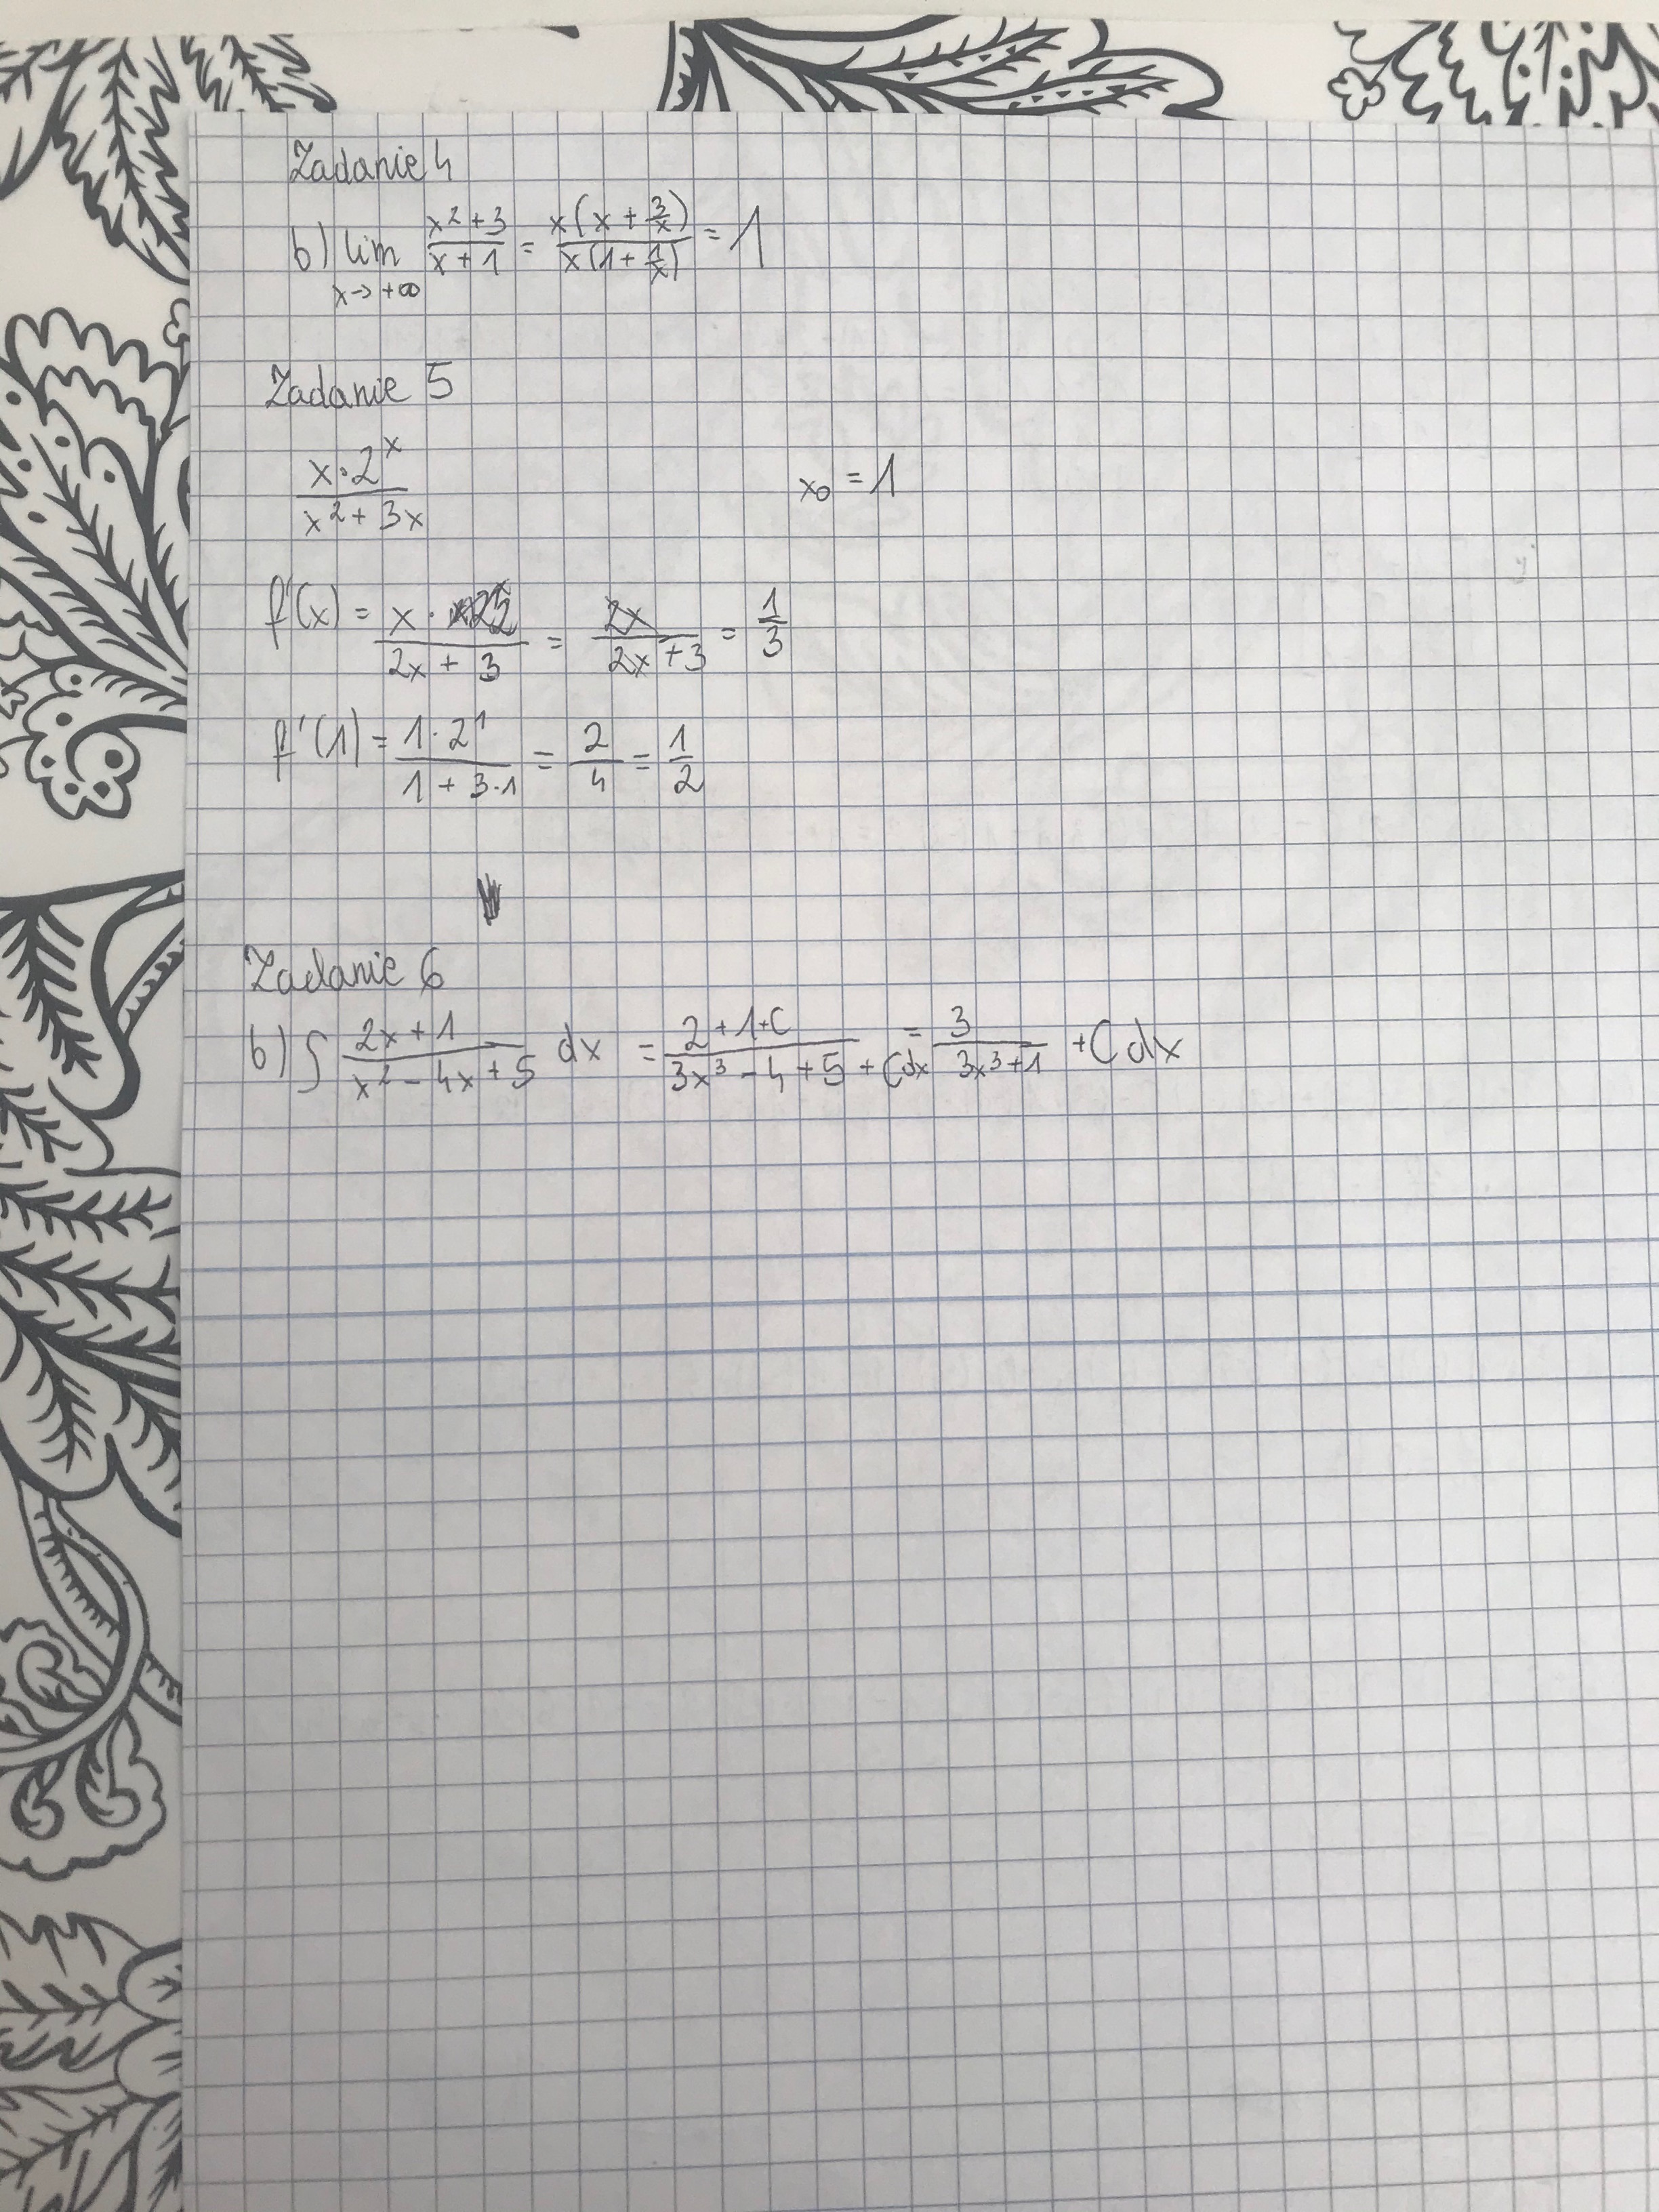 Zadanie 4
b) lim x→+∞ (x²+3)/(x+1) = x(x+3/x)/x(1+1/x) = 1
Zadanie 5
x·2ˣ/(x²+3x) x₀=1
f'(x) = x·/(2x+3) = 2x/(2x+3) = 1/3
f'(1) = 1·2¹/(1+3·1) = 2/4 = 1/2
Zadanie 6
b) ∫ (2x+1)/(x²-4x+5) dx = (2+1+C)/(3x³-4+5) + C dx = 3/(3x³+1) + C dx